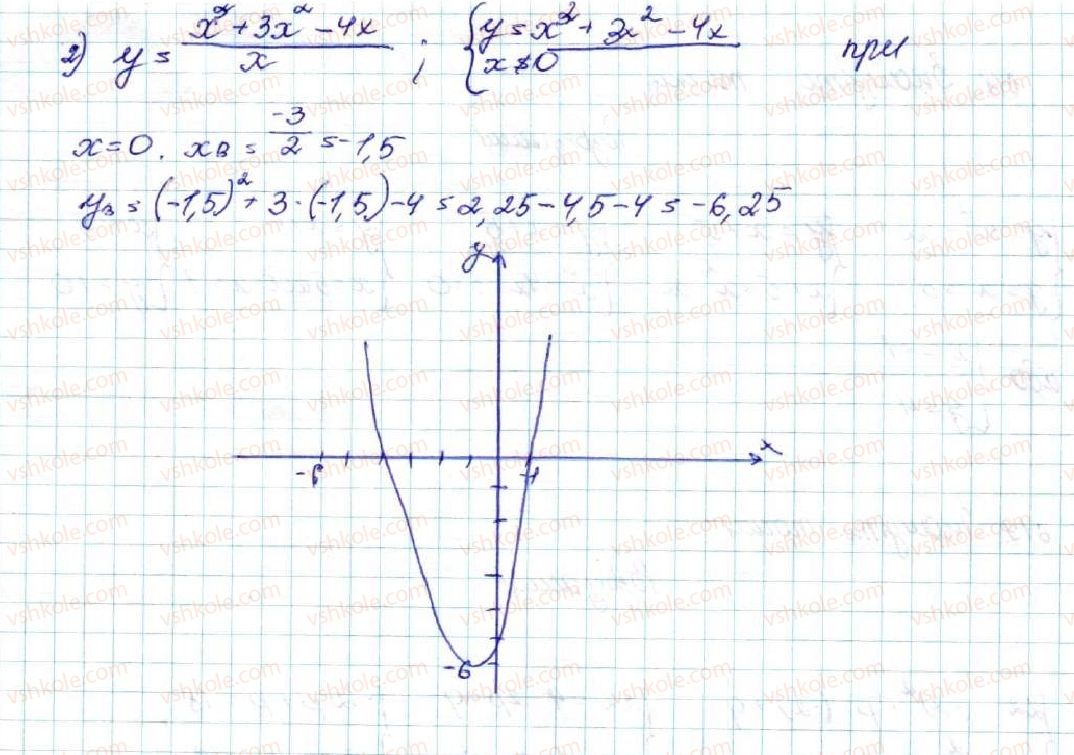 2) y = (x³ + 3x² - 4x)/x ; { y = x³ + 3x² - 4x при
x ≠ 0
x = 0. xв = -3/2 = -1,5
yв = (-1,5)² + 3·(-1,5) - 4 = 2,25 - 4,5 - 4 = -6,25
y
x
-6 1
-6
vshkole.com